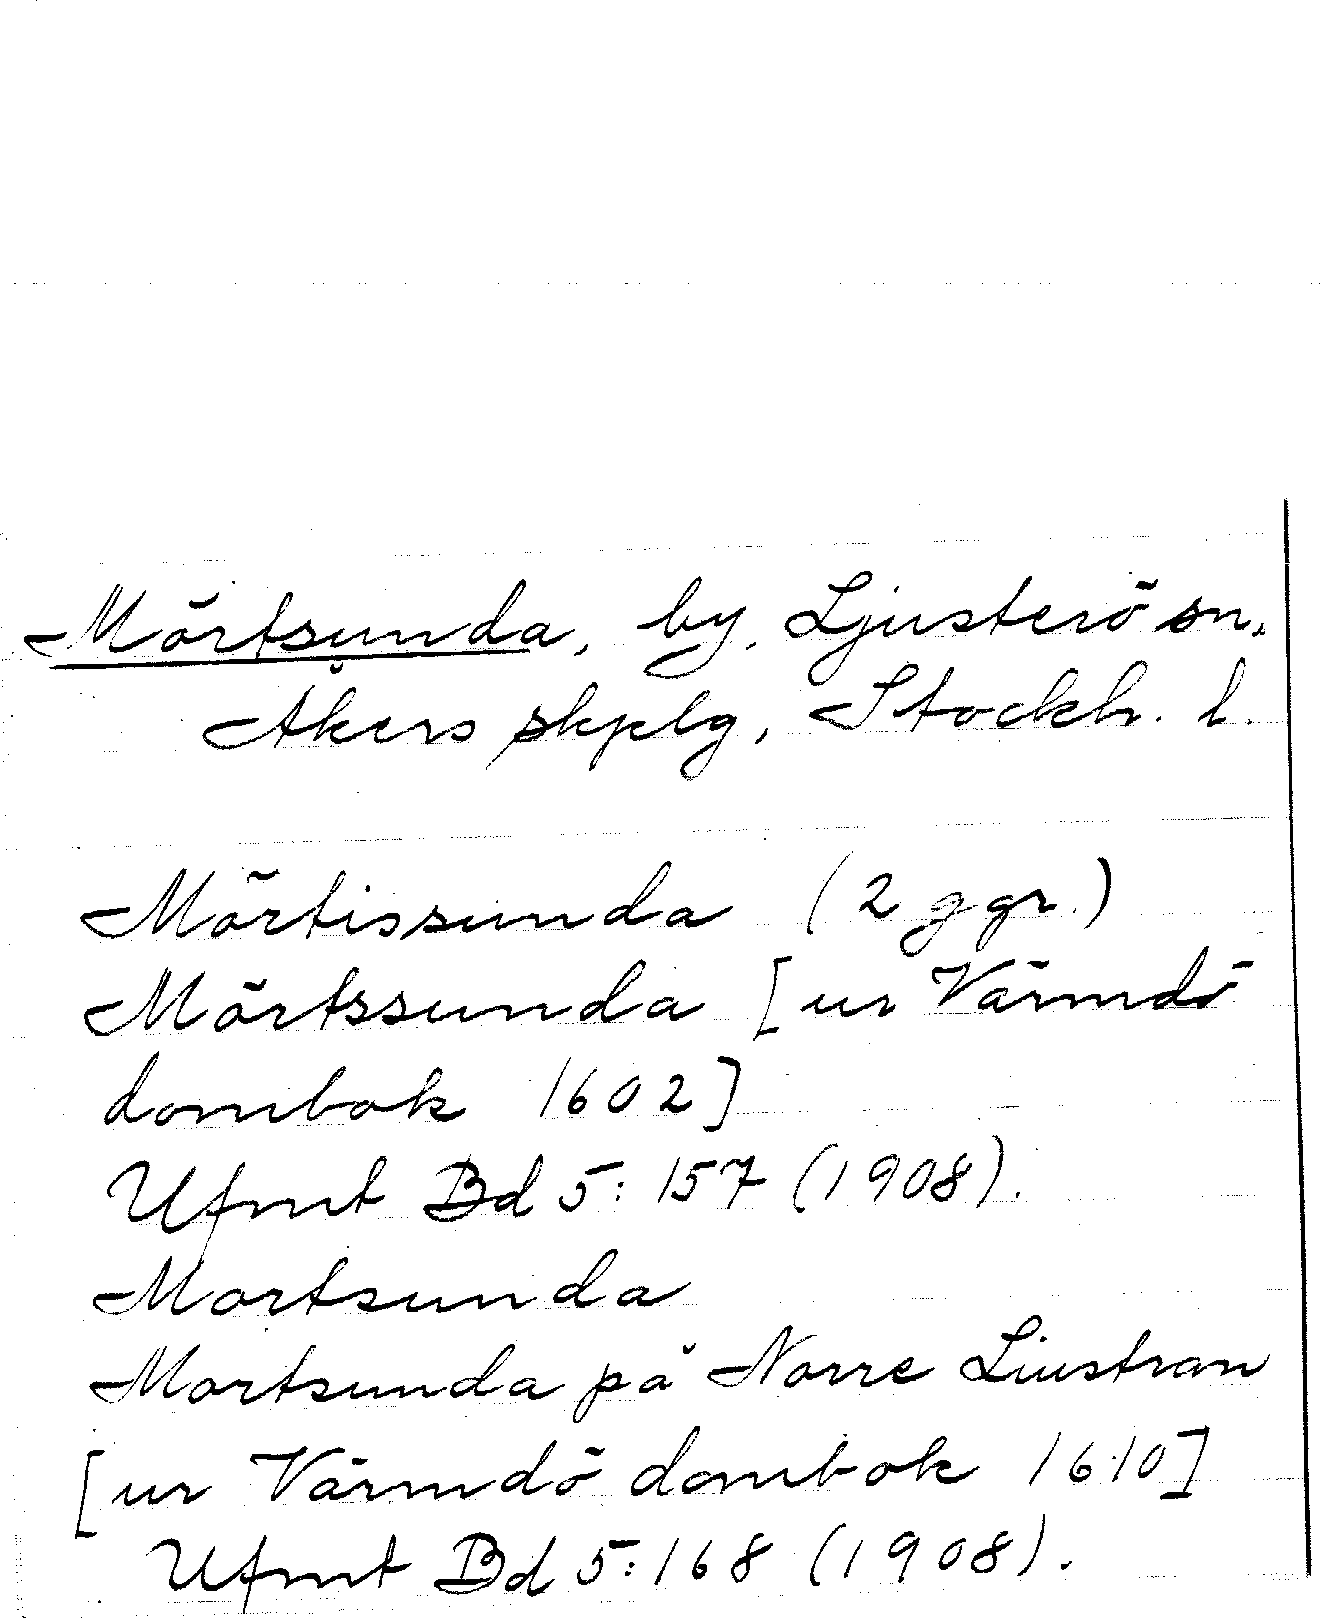 Mörtsunda, by, Ljusterö sn,
Åkers skplg, Stockh. l.
Mörtissunda (2 ggr.)
Mörtssunda [ur Värmdö
dombok 1602]
Ufmt Bd 5:157 (1908).
Mortsunda
Mortsunda på Norre Liustran
[ur Värmdö dombok 1610]
Ufmt Bd 5:168 (1908).